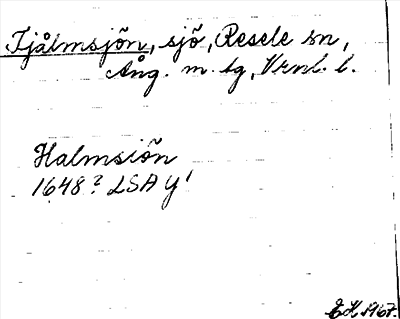 Tjålmsjön, sjö, Resele sn,
Ång. m. tg, Vrnl. l.
Halmsiön
1648? LSA Y'
EH 1967.